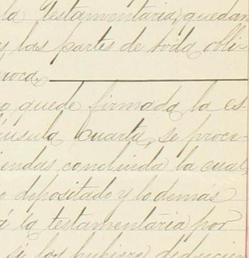 la testamentaria, quedan
y las partes de toda obli-
proca.
o quede firmada la es
áusula cuarta, se proce
endas concluida la cual
o depositado y lo demás
á la testamentaria por
si los hubiere deducien